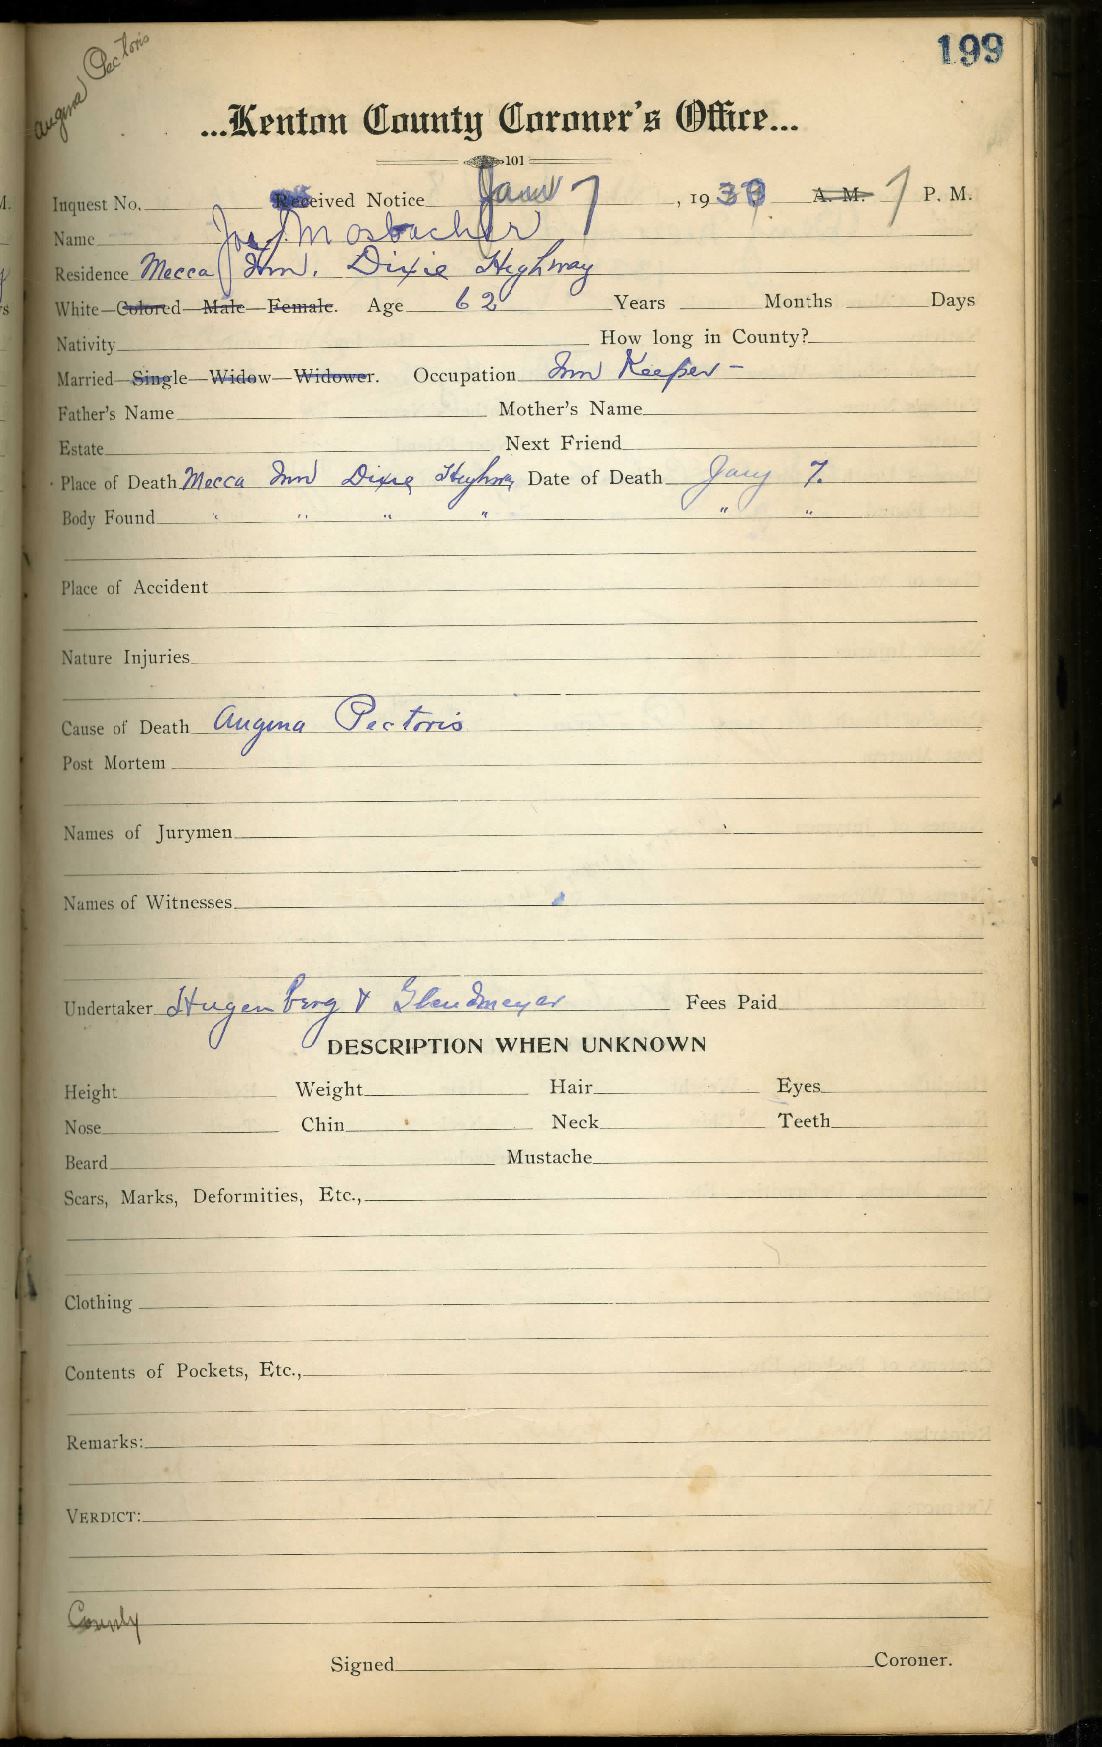 Angina Pectoris
199
...Kenton County Coroner's Office...
101
Inquest No. Received Notice Jany 7, 19 A. M. 7 P. M.
Name Jos J. Mosbacher
Residence Mecca Inn. Dixie Highway
White—Colored—Male—Female. Age 62 Years Months Days
Nativity How long in County?
Married—Single—Widow—Widower. Occupation Inn Keeper -
Father's Name Mother's Name
Estate Next Friend
Place of Death Mecca Inn Dixie Highway Date of Death Jany 7.
Body Found " " " " " "
Place of Accident
Nature Injuries
Cause of Death Angina Pectoris
Post Mortem
Names of Jurymen
Names of Witnesses
Undertaker Hugenberg & Glindmeyer Fees Paid
DESCRIPTION WHEN UNKNOWN
Height Weight Hair Eyes
Nose Chin Neck Teeth
Beard Mustache
Scars, Marks, Deformities, Etc.,
Clothing
Contents of Pockets, Etc.,
Remarks:
VERDICT:
County
Signed Coroner.